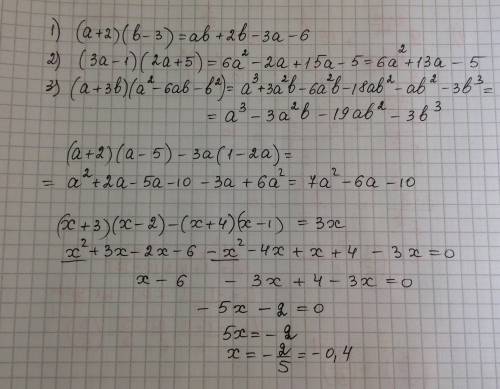 1) (a+2)(b-3)=ab+2b-3a-6
2) (3a-1)(2a+5)=6a²-2a+15a-5=6a²+13a-5
3) (a+3b)(a²-6ab-b²)=a³+3a²b-6a²b-18ab²-ab²-3b³=
= a³-3a²b-19ab²-3b³
(a+2)(a-5)-3a(1-2a)=
= a²+2a-5a-10-3a+6a²=7a²-6a-10
(x+3)(x-2)-(x+4)(x-1)=3x
x²+3x-2x-6-x²-4x+x+4-3x=0
x-6 - 3x+4-3x=0
-5x-2=0
5x=-2
x=-2/5=-0,4